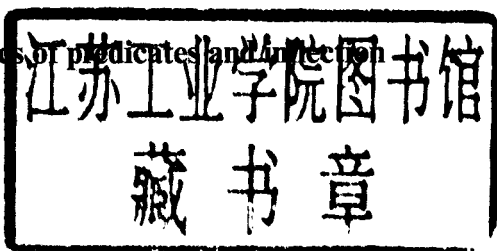 of predicates and inflection
江苏工业学院图书馆
藏书章